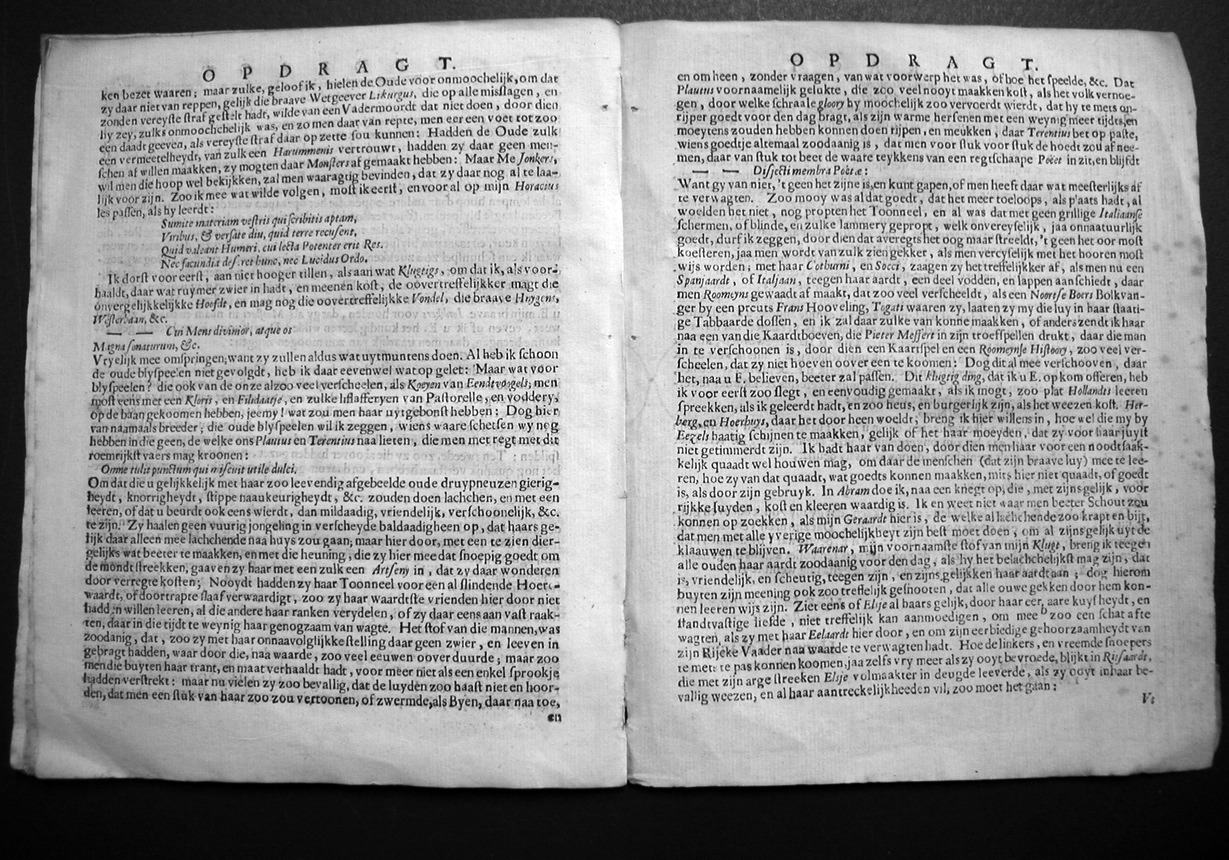 OPDRAGT.
ken bezet waaren; maar zulke, geloof ik, hielen de Oude voor onmoochelijk, om dat
zy daar niet van reppen, gelijk die braave Wetgeever Likurgus, die op alle misslagen, en
zonden vereyste straf gestelt hadt, wilde van een Vadermoordt dat niet doen, door dien
hy zey, zulks onmoochchelijk was, en zo men daar van repte, men eer een voet tot zoo
een daadt geeven, als vereyste straf daar op zette sou kunnen: Hadden de Oude zulk
een vermeetelheydt, van zulk een Harummenis vertrouwt, hadden zy daar geen men-
schen af willen maakken, zy mogten daar Monsters af gemaakt hebben: Maar Me Jonkers,
wil men die hoop wel bekijkken, zal men waaragtig bevinden, dat zy daar nog al te laa-
lijk voor zijn. Zoo ik mee wat wilde volgen, most ik eerst, en voor al op mijn Horacius
les passen, als hy leerdt:
Sumite materiam vestris qui scribitis aptam,
Viribus, & versate diu, quid terre recusent,
Quid valeant Humeri, cui lecta Potenter erit Res.
Nec facundia deseret hunc, nec Lucidus Ordo.
Ik dorst voor eerst, aan niet hooger tillen, als aan wat Klugtigs, om dat ik, als voor-
haaldt, daar wat ruymer zwier in hadt, en meenen kost, de oovertreffelijkker magt die
onvergelijkkelijkke Hoofdt, en mag nog die oovertreffelijkke Vondel, die braave Huygens,
Westerbaan, &c.
— — Cui Mens divinior, atque os
Magna sonaturum, &c.
Vryelijk mee omspringen; want zy zullen aldus wat uytmuntens doen. Al heb ik schoon
de oude blyspeelen niet gevolgdt, heb ik daar eevenwel wat op gelet: Maar wat voor
blyspeelen? die ook van de onze alzoo veel verscheelen, als Koeyen van Eendtvoogels; men
most eens met een Kloris, en Filidaatje, en zulke listasseryen van Pastorelle, en voddery,
op de baan gekoomen hebben, jeemy! wat zou men haar uytgebonst hebben: Dog hier
van naamaals breeder; die oude blyspeelen wil ik zeggen, wiens waare schetsen wy neg
hebben in die geen, de welke ons Plautus en Terentius naa lieten, die men met regt met dit
roemrijkst vaers mag kroonen:
Omne tulit punctum qui miscuit utile dulci.
Om dat die u gelijkkelijk met haar zoo leevendig afgebeelde oude druypneuzen gierig-
heydt, knorrigheydt, stippe naaukeurigheydt, &c. zouden doen lachchen, en met een
leeren, of dat u beurdt ook eens wierdt, dan mildaadig, vriendelijk, verschoonelijk, &c.
te zijn. Zy haalen geen vuurig jongeling in verscheyde baldaadigheen op, dat haars ge-
lijk daar alleen mee lachchende naa huys zou gaan; maar hier door, met een te zien dier-
gelijks wat beeter te maakken, en met die heuning, die zy hier mee dat snoepig goedt om
de mondt streekken, gaaven zy haar met een zulk een Artseny in, dat zy daar wonderen
door verregte kosten; Nooydt hadden zy haar Toonneel voor een al slindende Hoere-
waardt, of doortrapte slaaf verwaardigt, zoo zy haar waardste vrienden hier door niet
hadden willen leeren, al die andere haar ranken verydelen, of zy daar eens aan vast raak-
ten, daar in die tijdt te weynig haar genogzaam van wagte. Het stof van die mannen, was
zoodanig, dat, zoo zy met haar onnaavolglijkke stelling daar geen zwier, en leeven in
gebragt hadden, waar door die, naa waarde, zoo veel eeuwen ooverduurde; maar zoo
men die buyten haar trant, en maat verhaaldt hadt, voor meer niet als een enkel sprookje
hadden verstrekt: maar nu vielen zy zoo bevallig, dat de luyden zoo haast niet en hoor-
den, dat men een stuk van haar zoo zou vertoonen, of zwermde, als Byen, daar naa toe,
en
OPDRAGT.
en om heen, zonder vraagen, van wat voorwerp het was, of hoe het speelde, &c. Dat
Plautus voornaamelijk gelukte, die zoo veel nooyt maakken kost, als het volk vernoe-
gen, door welke schraale gloory hy moochelijk zoo vervoerdt wierdt, dat hy te mets on-
rijper goedt voor den dag bragt, als zijn warme hersenen met een weynig meer tijdts, en
moeytens zouden hebben konnen doen rijpen, en meukken, daar Terentius bet op paste,
wiens goedtje altemaal zoodaanig is, dat men voor stuk voor stuk de hoedt zou af nee-
men, daar van stuk tot beet de waare teykkens van een regtschaape Poëet in zit, en blijfdt
— — Disjecti membra Poëtæ:
Want gy van niet, 't geen het zijne is, en kunt gapen, of men heeft daar wat meesterlijks af
te verwagten. Zoo mooy was al dat goedt, dat het meer toeloops, als plaats hadt, al
woelden het niet, nog propten het Toonneel, en al was dat met geen grillige Italiaanse
schermen, of blinde, en zulke lammery gepropt, welk onvereyselijk, jaa onnatuurlijk
goedt, durf ik zeggen, door dien dat averegts het oog maar streeldt, 't geen het oor most
koesteren, jaa men wordt van zulk zien gekker, als men vereyselijk met het hooren most
wijs worden; met haar Cothurni, en Socci, zaagen zy het treffelijkker af, als men nu een
Spanjaardt, of Italjaan, teegen haar aardt, een deel vodden, en lappen aanschiedt, daar
men Roomeyns gewaadt af maakt, dat zoo veel verscheeldt, als een Noortse Boers Bolkvan-
ger by een preuts Frans Hooveling, Togati waaren zy, laaten zy my die luy in haar staati-
ge Tabbaarde dossen, en ik zal daar zulke van konne maakken, of anders zendt ik haar
naa een van die Kaardtboeven, die Pieter Messert in zijn troefspellen drukt, daar die man
in te verschoonen is, door dien een Kaartspel en een Roomeynse Histoory, zoo veel ver-
scheelen, dat zy niet hoeven oover een te koomen: Dog dit al mee verschooven, daar
het, naa u E. believen, beeter zal passen. Dit klugtig ding, dat ik u E. op kom offeren, heb
ik voor eerst zoo slegt, en eenvoudig gemaakt, als ik mogt, zoo plat Hollandts leeren
spreekken, als ik geleerdt hadt, en zoo heus, en burgerlijk zijn, als het weezen kost. Her-
berg, en Hoerhuys, daar het door heen woeldt, breng ik hier willens in, hoe wel die my by
Eezels haatig schijnen te maakken, gelijk of het haar moeyden, dat zy voor haar juyst
niet getimmerdt zijn. Ik hadt haar van doen, door dien men haar voor een noodtsaak-
kelijk quaadt wel houwen mag, om daar de menschen (dat zijn braave luy) mee te lee-
ren, hoe zy van dat quaadt, wat goedts konnen maakken, mits hier niet quaadt, of goedt
is, als door zijn gebruyk. In Abram doe ik, naa een kriegt op, die, met zijns gelijk, voor
rijkke suyden, kost en kleeren waardig is. Ik en weet niet waar men beeter Schout zou
konnen op zoekken, als mijn Geraardt hier is, de welke al lachchende zoo krapt en bijt,
dat men met alle yverige moochelijkheyt zijn best moet doen, om al zijns gelijk uyt de
klaauwen te blijven. Waarenar, mijn voornaamste stof van mijn Klugt, breng ik teegen
alle ouden haar aardt zoodaanig voor den dag, als hy het belachchelijkst mag zijn, dat
is, vriendelijk, en scheutig, teegen zijn, en zijns gelijkken haar aardt aan; dog hierom
buyten zijn meening ook zoo treffelijk gesnooten, dat alle ouwe gekken door hem kon-
nen leeren wijs zijn. Ziet eens of Elsje al haars gelijk, door haar eerbaare kuysheydt, en
standtvastige liefde, niet treffelijk kan aanmoedigen, om mee zoo een schat af te
wagten, als zy met haar Eelaardt hier door, en om zijn eerbiedige gehoorzaamheydt van
zijn Rijkke Vaader naa waarde te verwagten hadt. Hoe de linkers, en vreemde snoepers
te mets te pas konnen koomen, jaa zelfs vry meer als zy ooyt bevroede, blijkt in Ritsaardt,
die met zijn arge streeken Elsje volmaakter in deugde leeverde, als zy ooyt in haar be-
vallig weezen, en al haar aantreckelijkheeden vil, zoo moet het gaan:
Vt